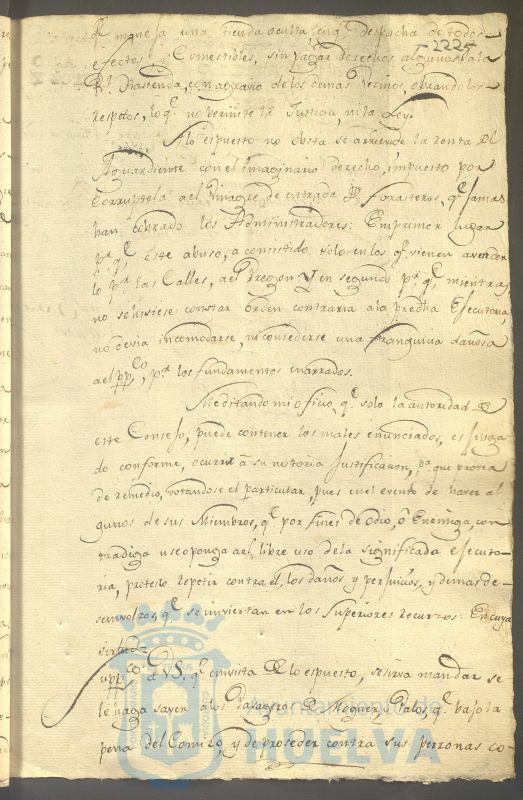 qe. maneja una tienda oculta, enqe. despacha de todos
-222-
efectos y Comestibles, sin pagar derechos algunos ala
Rl. Hasienda, con agravio de los demas Vezinos, obrando los
respetos, lo qe. no permite la Justicia, ni la Ley.
A lo espuesto no obsta se arriende la renta del
Aguardiente con el imaginario derecho, impuesto por
Corruptela ael Vinagre de entrada pr. Forasteros, qe. jamas
han cobrado los Administradores: Emprimer lugar
pr. qe. este abuso, a consistido solo en los qe. vienen avender
lo pr. las Calles, ael Pregon: Y en segundo pr. qe. mientras
no se hisiese constar orden contraria ala predha. Executoria,
no devia incomodarse, ni concederse una franquicia dañosa
ael ppco., pr. los fundamentos enarrados.
Meditando mi oficio, qe. solo la autoridad de
este Consejo, puede contener los males enunciados, es jusga
do conforme, ocurrir â su notoria Justificacion, pa. que provea
de remedio, votandose el particular, pues enel evento de haver al
gunos de sus Miembros, qe. por fines de odio, ô Enemiga, con
tradiga u se oponga ael libre uso dela significada executo-
ria, protesto repetir contra el, los daños y perjuicios, y demas de-
sembolzos, qe. se inviertan en los Superiores recursos: En cuya
virtud=
Suppco. â VS. qe. en vista de lo espuesto, se sirva mandar se
le haga saver â los Pasageros de Moguer, y Palos, qe. bajo la
pena del Comizo, y de proseder contra sus personas co-
Ayuntamiento de
HUELVA